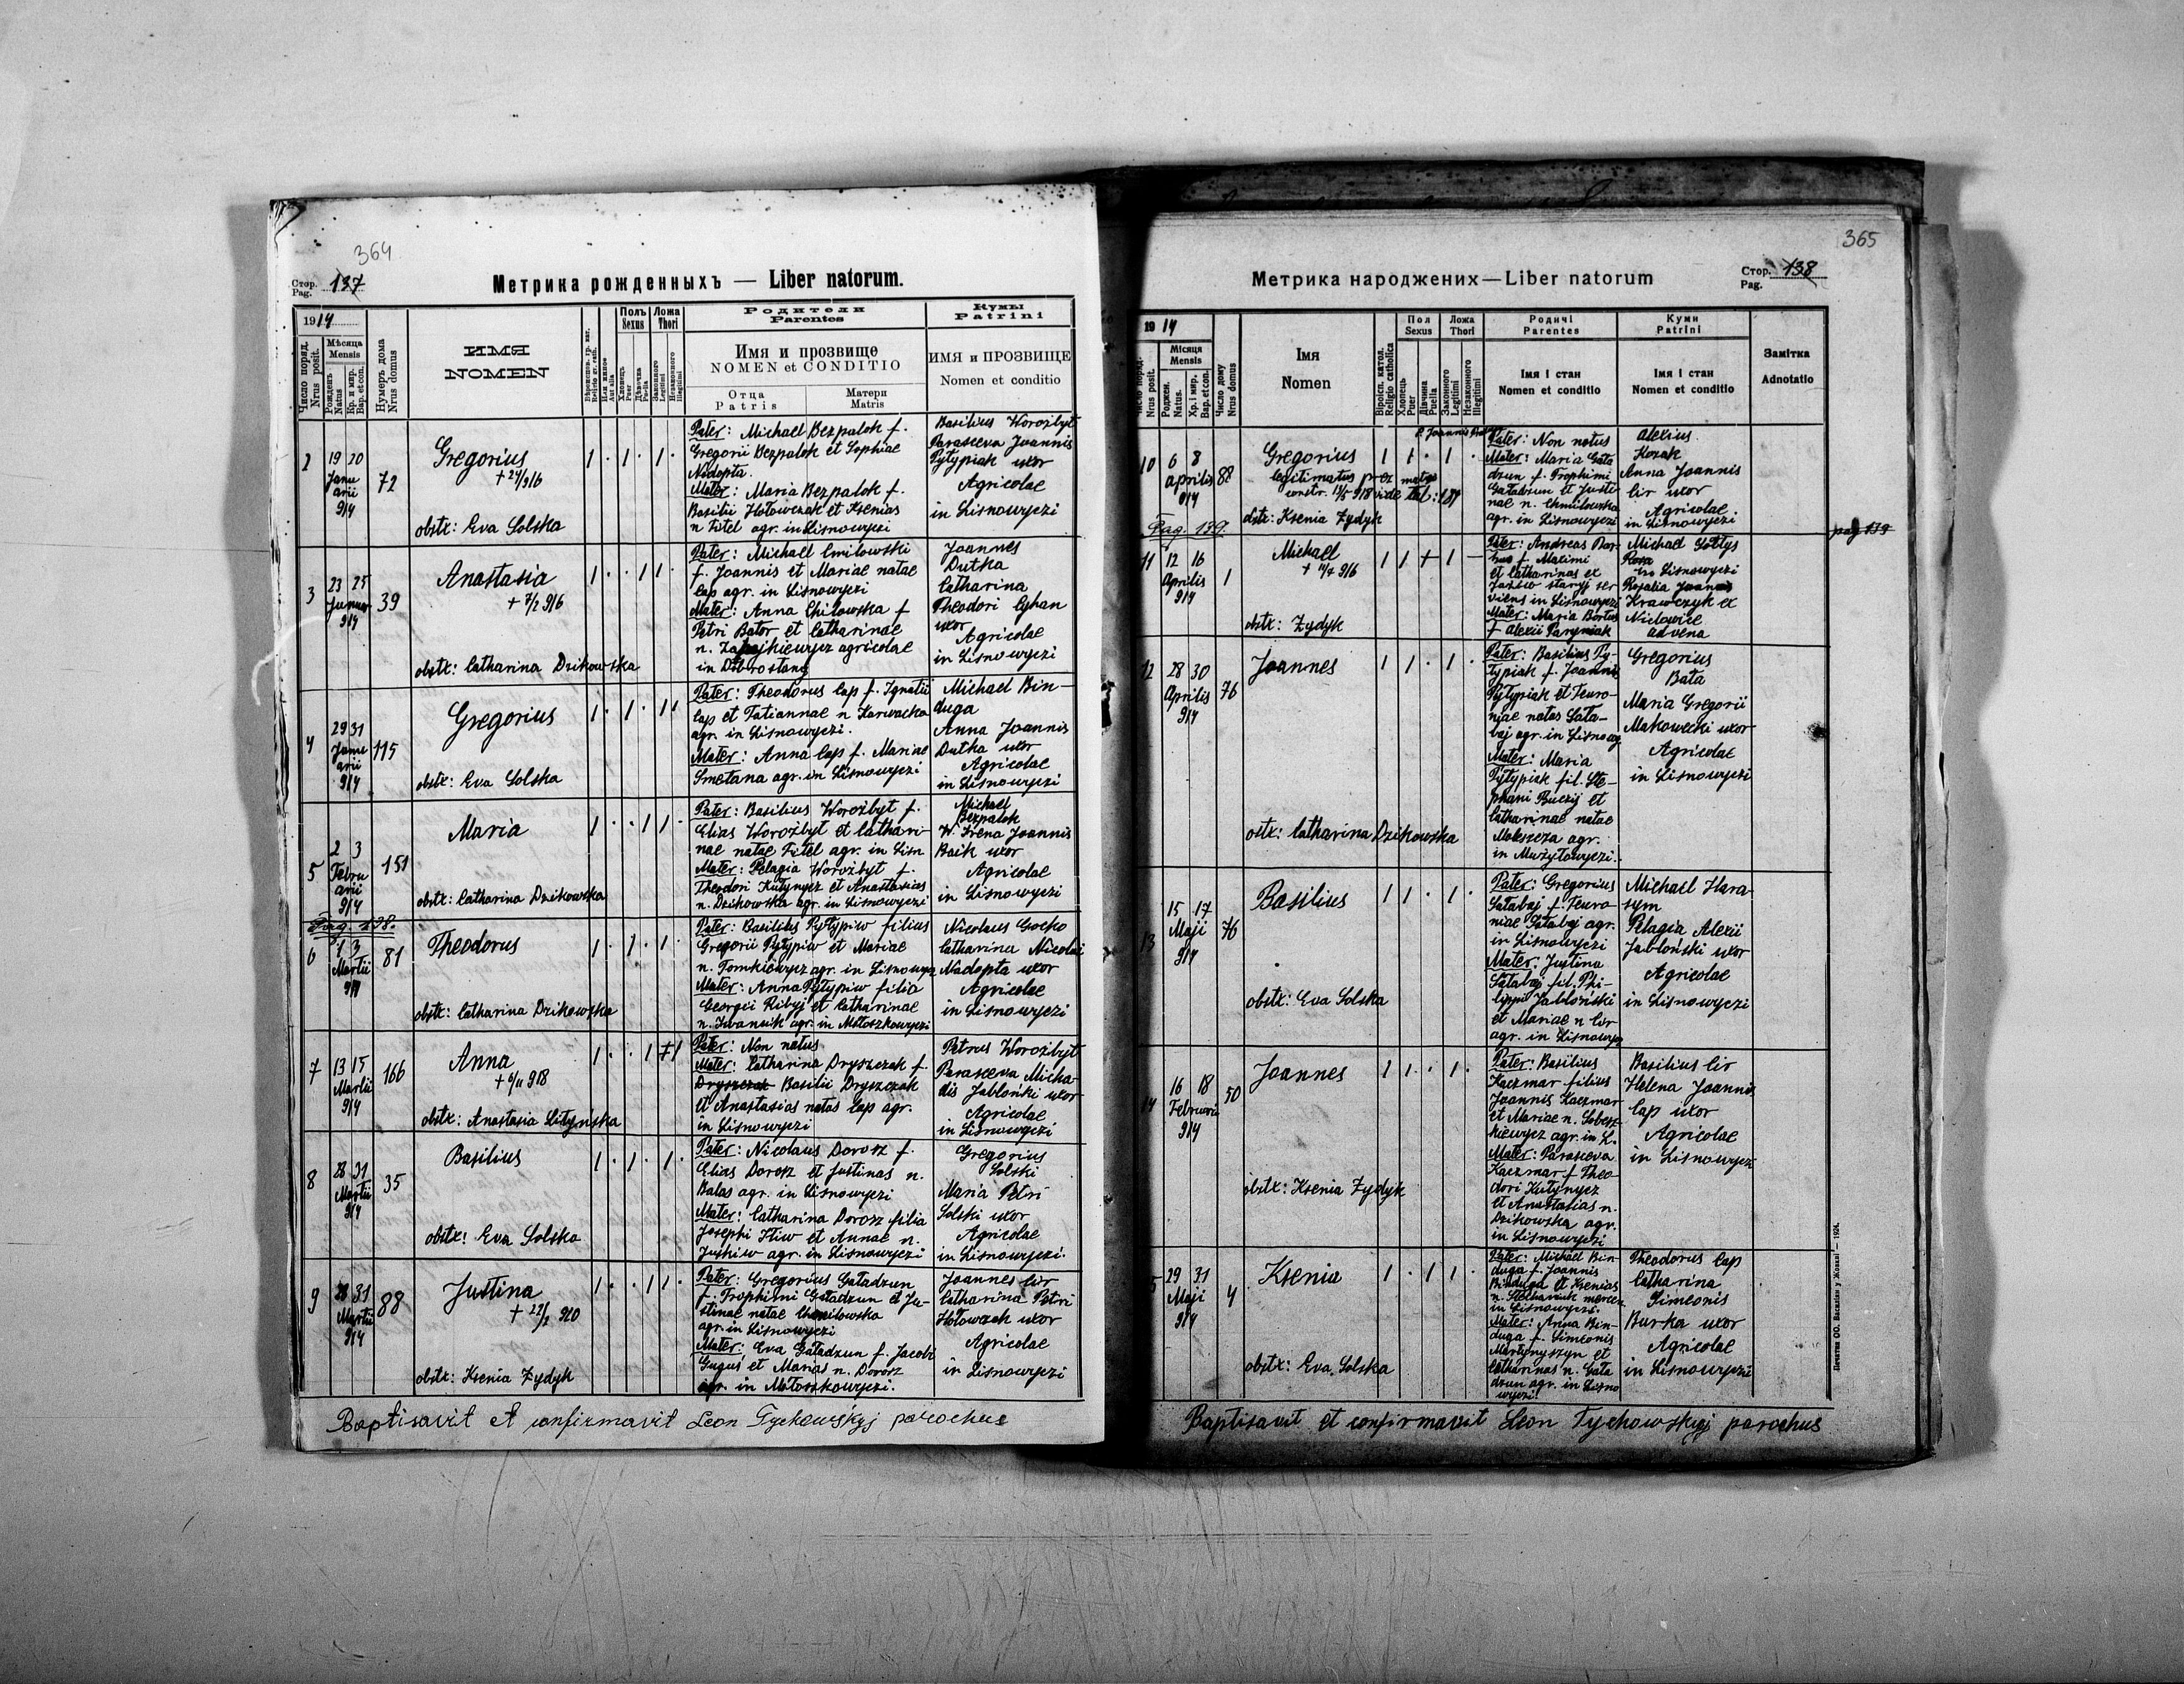 364
Стор.
Pag. 137
Метрика рожденныхъ — Liber natorum.
1914
Число поряд.
Nrus posit.
Мѣсяца
Mensis
Рожденъ
Natus
Кр. и мир.
Bap. et con.
Нумеръ дома
Nrus domus
ИМЯ
NOMEN
Полъ
Sexus
Ложа
Thori
Хлопецъ
Puer
Дѣвочка
Puella
Законного
Legitimi
Незаконного
Illegitimi
Родители
Parentes
Имя и прозвище
NOMEN et CONDITIO
Отца
Patris
Матери
Matris
Кумы
Patrini
ИМЯ и ПРОЗВИЩЕ
Nomen et conditio
2
19 20
Janu
arii
914
72
Gregorius
+ 24/ 916
obstx: Eva Solska
1 . 1 . 1 .
Pater: Michael Bezpalok f.
Gregorii Bezpalok et Sophiae
Nadopta.
Mater: Maria Bezpalok f.
Basilii Hołowczak et Ksenias
n Fitel agr. in Lisnowyczi
Basilius Worożbyt
Parasceva Joannis
Pytypiak uxor
Agricolae
in Lisnowyczi
3
23 25
914
39
Anastasia
+ 7/2 916
obstx: Catharina Dzikowska
1 . . 1 1 .
Pater: Michael Cmilowski
f. Joannis et Mariae natae
Cap agr. in Lisnowyczi
Mater: Anna f
Petri Bator et Catharinae
n. agricolae
in Dobrostany
Joannes
Dutka
Catharina
Theodori
uxor
Agricolae
in Lisnowyczi
4
29 31
Janu
arii
914
115
Gregorius
obstx: Eva Solska
1 . 1 . 1 .
Pater: Theodorus Cap f. Ignatii
Cap et Tatiannae n Karwacka
agr. in Lisnowyczi.
Mater: Anna Cap f. Mariae
Smetana agr. in Lisnowyczi
Michael Bin-
duga
Anna Joannis
Dutka uxor
Agricolae
in Lisnowyczi
5
2 3
Febru
arii
914
151
Maria
obstx: Catharina Dzikowska
1 . . 1 1 .
Pater: Basilius Worożbyt f.
Elias Worożbyt et Cathari-
nae natae Fitel agr. in Lisn
Mater: Pelagia Worożbyt f.
Theodori Kutynycz et Anastasias
n. Dzikowska agr. in Lisnowyczi
Michael
Bezpalok
W. Irena Joannis
Baik uxor
Agricolae
in Lisnowyczi
Pag. 138.
6
1 3
Martii
914
81
Theodorus
obstx: Catharina Dzikowska
1 . 1 . 1 .
Pater: Basilius Pytypiw filius
Gregorii Pytypiw et Mariae
n. Tomkiewycz agr. in Lisnowycz
Mater: Anna Pytypiw filia
Georgii Kibyj et Catharinae
n. Iwansik agr. in Mołoszkowyczi
Nicolaus Gocko
Catharina Nicolai
Nadopta uxor
Agricolae
in Lisnowyczi
7
13 15
Martii
914
166
Anna
+ 6/11 918
obstx: Anastasia Litynska
Pater: Non notus
Mater: Catharina Dryszczak f.
Dryszczak Basilii Dryszczak
et Anastasias natas Cap agr.
in Lisnowyczi
Petrus Worożbyt
Parasceva Micha-
elis Jabłoński uxor
Agricolae
in Lisnowyczi
8
28 31
Martii
914
35
Basilius
obstx: Eva Solska
1 . 1 . 1 .
Pater: Nicolaus Dorosz f.
Elias Dorosz et Justinas n.
Balas agr. in Lisnowyczi
Mater: Catharina Dorosz filia
Josephi Iliw et Annae n.
Juskiw agr. in Lisnowyczi
Gregorius
Solski
Maria Petri
Solski uxor
Agricolae
in Lisnowyczi.
9
28 31
Martii
914
88
Justina
+ 22/2 920
obstx: Ksenia Zydyk
1 . . 1 1 .
Pater: Gregorius Gaładzun
f. Trophimi Gaładzun et Ju-
stinae natae Chmilowska
agr. in Lisnowyczi
Mater: Eva Gaładzun f. Jacobi
Guguś et Marias n. Dorosz
agr. in Mołoszkowyczi.
Joannes Cir
Catharina Petri
Hołowczak uxor
Agricolae
in Lisnowyczi
Baptisavit et confirmavit Leon Tychowskyj parochus
365
Метрика народжених—Liber natorum
Стор.
Pag. 138
1914
Nrus posit.
Місяця
Mensis
Роджен.
Natus.
Хр. і мир.
Bap. et con.
Число дому
Nrus domus
Імя
Nomen
Віроісп. католь.
Religio catholica
Пол
Sexus
Ложа
Thori
Хлопець
Puer
Дівчина
Puella
Законного
Legitimi
Незаконного
Illegitimi
Родичі
Parentes
Імя і стан
Nomen et conditio
Куми
Patrini
Імя і стан
Nomen et conditio
Замітка
Adnotatio
10
6 8
Aprilis
914
88
Gregorius
legitimatus
obstx: Ksenia Zydyk
1 1 . 1 .
Pater: Non notus
Mater: Maria Gała
dzun f. Trophimi
Gaładzun et Justi
nae n. Chmilowska
agr. in Lisnowyczi
Alexius
Kozak
Anna Joannis
Cir uxor
Agricolae
in Lisnowyczi
Pag. 139.
pag 139
11
12 16
Aprilis
914
1
Michael
obstx: Zydyk
Pater: Andreas
f. Maximi
et Catharinas ex
staryj ser
viens in Lisnowyczi
Mater: Maria
f Alexii Paryniak
Michael Sołtys
in Lisnowyczi
Rosalia Joannis
Krawczyk ex
advena
12
28 30
Aprilis
914
76
Joannes
obstx: Catharina Dzikowska
1 1 . 1 .
Pater: Basilius Py-
typiak f. Joannis
Pytypiak et Feuro-
niae natas Sała-
baj agr. in Lisnowycz
Mater: Maria
Pytypiak fil. Ste-
phani Buczij et
Catharinae natae
Makszcza agr.
in Mużyłowyczi.
Gregorius
Bata
Maria Gregorii
Makowecki uxor
Agricolae
in Lisnowyczi
13
15 17
Maji
914
76
Basilius
obstx: Eva Solska
1 1 . 1
Pater: Gregorius
Sałabaj f. Feuro-
niae Sałabaj agr.
in Lisnowyczi
Mater: Justina
Sałabaj fil. Phi-
lippi Jabłoński
et Mariae n Cir
agr. in Lisnowycz
Michael Hara-
sym
Pelagia Alexii
Jabłoński uxor
Agricolae
in Lisnowyczi
14
16 18
Februarii
914
50
Joannes
obstx: Ksenia Zydyk
1 1 . 1 .
Pater: Basilius
Kaczmar filius
Joannis Kaczmar
et Mariae n. Sobesz-
kiewycz agr. in L.
Mater: Parasceva
Kaczmar f. Theo-
dori Kutynycz
et Anastasias n.
Dzikowska agr.
in Lisnowyczi
Basilius Cir
Helena Joannis
Cap uxor
Agricolae
in Lisnowyczi
29 31
Maji
914
4
Ksenia
obstx: Eva Solska
1 . 1 1 .
Pater: Michael Bin-
duga f. Joannis
Binduga et Ksenias
in Lisnowyczi.
Mater: Anna Bin-
duga f. Simeonis
Martynyszyn et
Catharinas n. Gała
dzun agr. in Lisno
wyczi.
Theodorus Cap
Catharina
Simeonis
Burka uxor
Agricolae
in Lisnowyczi
Печатня ОО. Василіян у Жовкві — 1924.
Baptisavit et confirmavit Leon Tychowskyj parochus